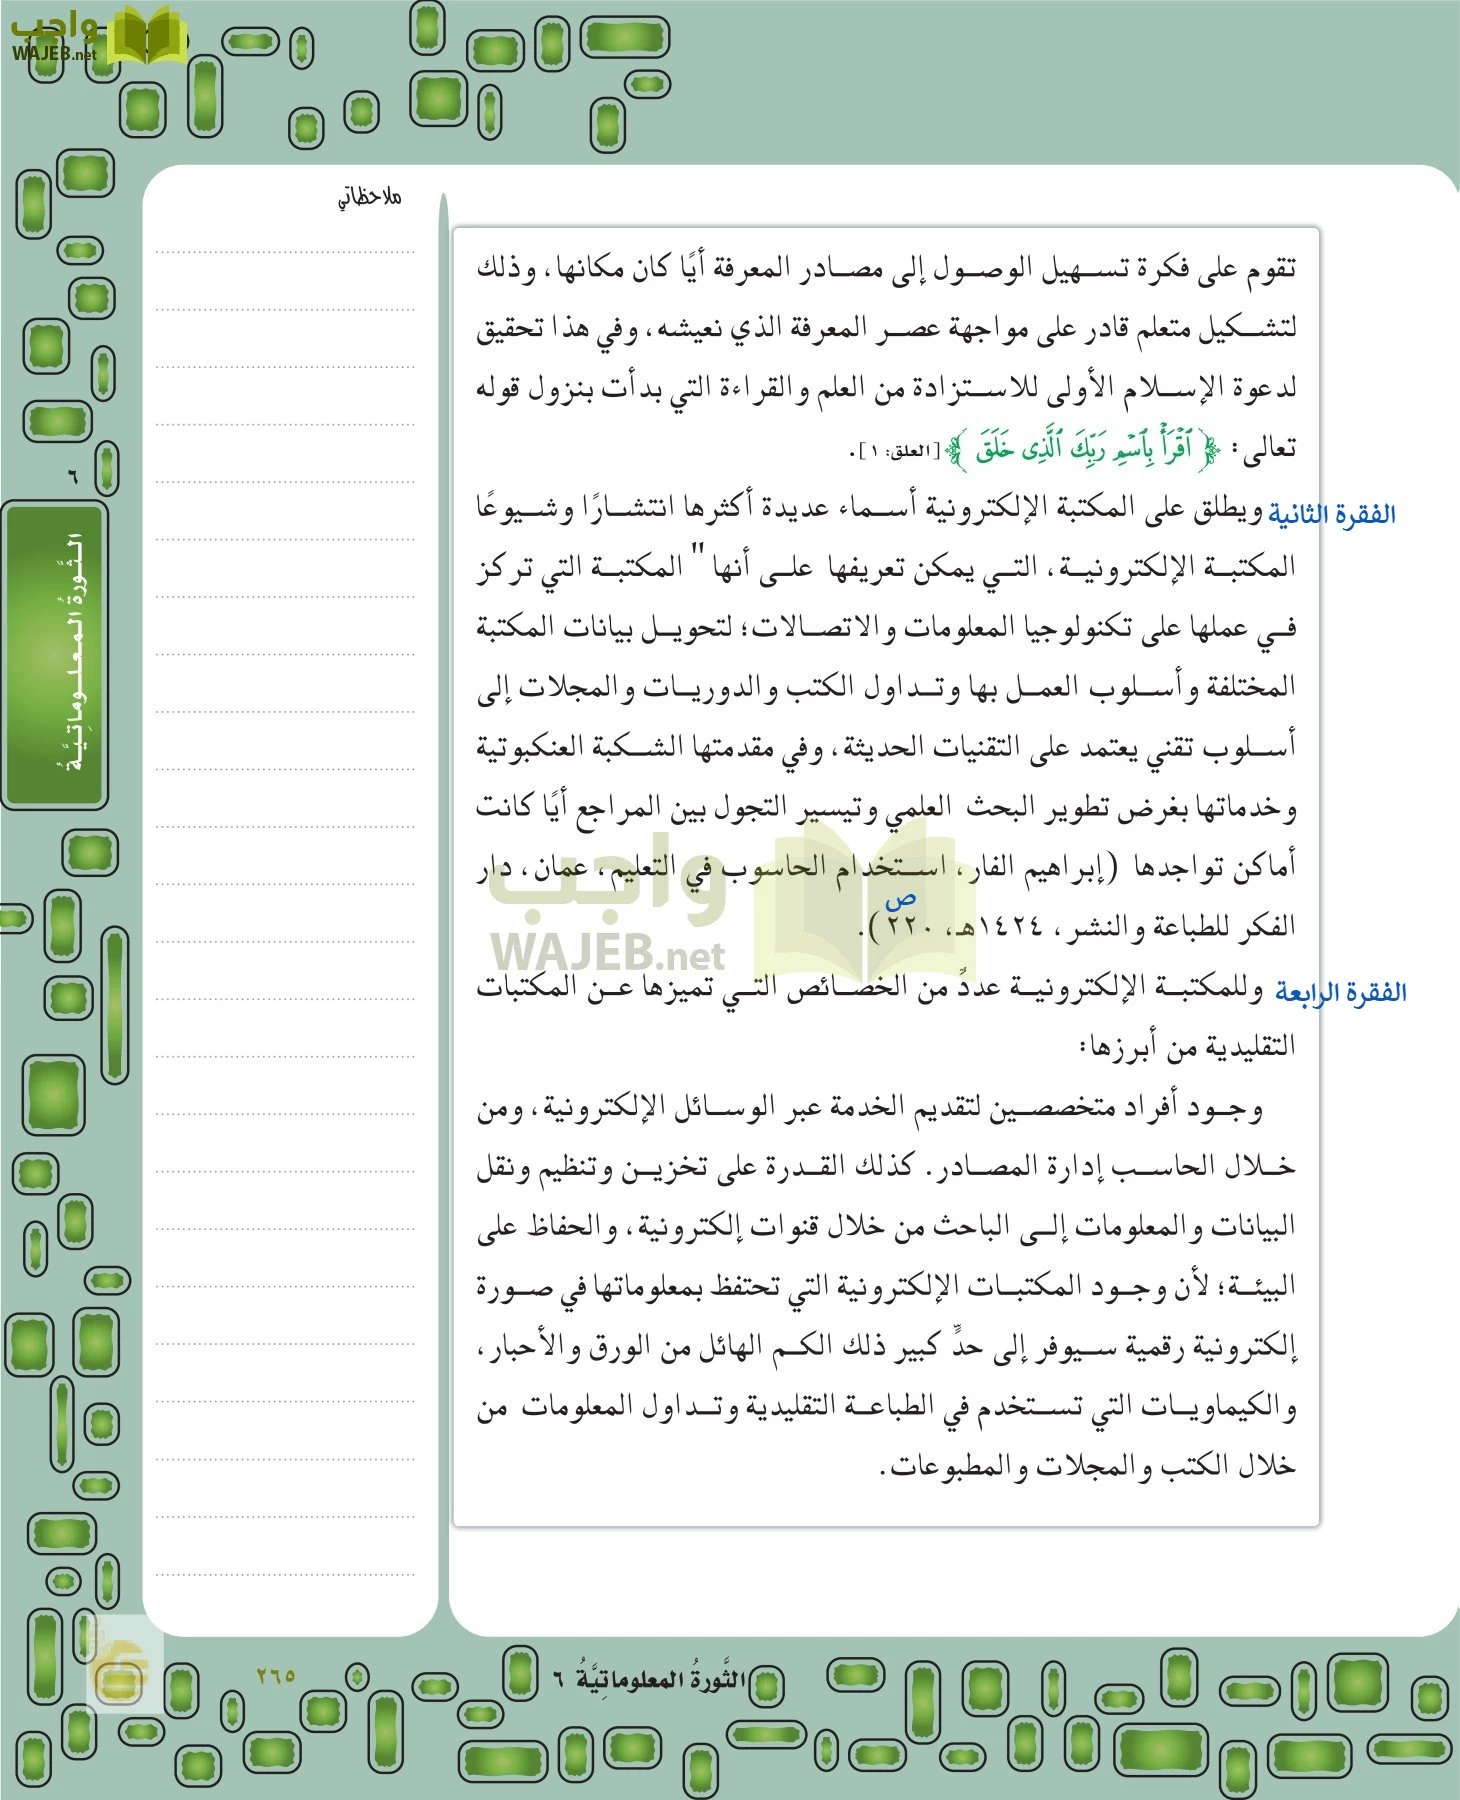 واجب
WAJEB.net
ملاحظاتي
تقوم على فكرة تسهيل الوصول إلى مصادر المعرفة أيًا كان مكانها، وذلك
لتشكيل متعلم قادر على مواجهة عصر المعرفة الذي نعيشه، وفي هذا تحقيق
لدعوة الإسلام الأولى للاستزادة من العلم والقراءة التي بدأت بنزول قوله
تعالى: ﴿ ٱقۡرَأۡ بِٱسۡمِ رَبِّكَ ٱلَّذِى خَلَقَ ﴾ [العلق: ١].
الفقرة الثانية ويطلق على المكتبة الإلكترونية أسماء عديدة أكثرها انتشارًا وشيوعًا
المكتبة الإلكترونية، التي يمكن تعريفها على أنها " المكتبة التي تركز
في عملها على تكنولوجيا المعلومات والاتصالات؛ لتحويل بيانات المكتبة
المختلفة وأسلوب العمل بها وتداول الكتب والدوريات والمجلات إلى
أسلوب تقني يعتمد على التقنيات الحديثة، وفي مقدمتها الشكبة العنكبوتية
وخدماتها بغرض تطوير البحث العلمي وتيسير التجول بين المراجع أيًا كانت
أماكن تواجدها (إبراهيم الفار، استخدام الحاسوب في التعليم، عمان، دار
الفكر للطباعة والنشر، ١٤٢٤هـ، ص ٢٢٠).
واجب
WAJEB.net
الفقرة الرابعة وللمكتبة الإلكترونية عددٌ من الخصائص التي تميزها عن المكتبات
التقليدية من أبرزها:
وجود أفراد متخصصين لتقديم الخدمة عبر الوسائل الإلكترونية، ومن
خلال الحاسب إدارة المصادر. كذلك القدرة على تخزين وتنظيم ونقل
البيانات والمعلومات إلى الباحث من خلال قنوات إلكترونية، والحفاظ على
البيئة؛ لأن وجود المكتبات الإلكترونية التي تحتفظ بمعلوماتها في صورة
إلكترونية رقمية سيوفر إلى حدٍّ كبير ذلك الكم الهائل من الورق والأحبار،
والكيماويات التي تستخدم في الطباعة التقليدية وتداول المعلومات من
خلال الكتب والمجلات والمطبوعات.
٦
الثَّورةُ المعلوماتِيَّةُ
الثَّورةُ المعلوماتِيَّةُ ٦
٢٦٥